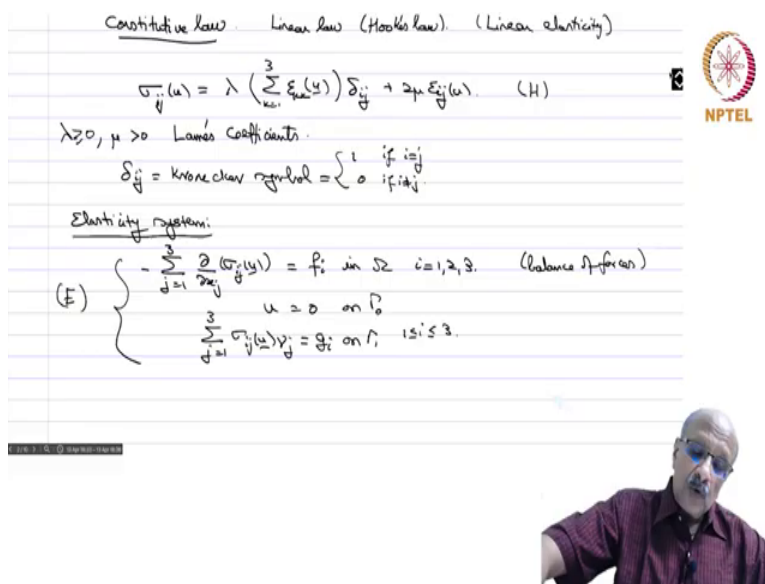 Constitutive law. Linear law (Hooke's law). (Linear elasticity)
σ_ij(u) = λ (∑_{k=1}^{3} ε_kk(u)) δ_ij + 2μ ε_ij(u). (H)
λ≥0, μ >0 Lamé's Coefficients.
δ_ij = Kronecker symbol = { 1 if i=j
0 if i≠j.
Elasticity system:
(E) { - ∑_{j=1}^{3} ∂/∂x_j (σ_ij(u)) = f_i in Ω i=1,2,3. (balance of forces)
u = 0 on Γ_0
∑_{j=1}^{3} σ_ij(u) ν_j = g_i on Γ_1 1≤i≤3.
NPTEL